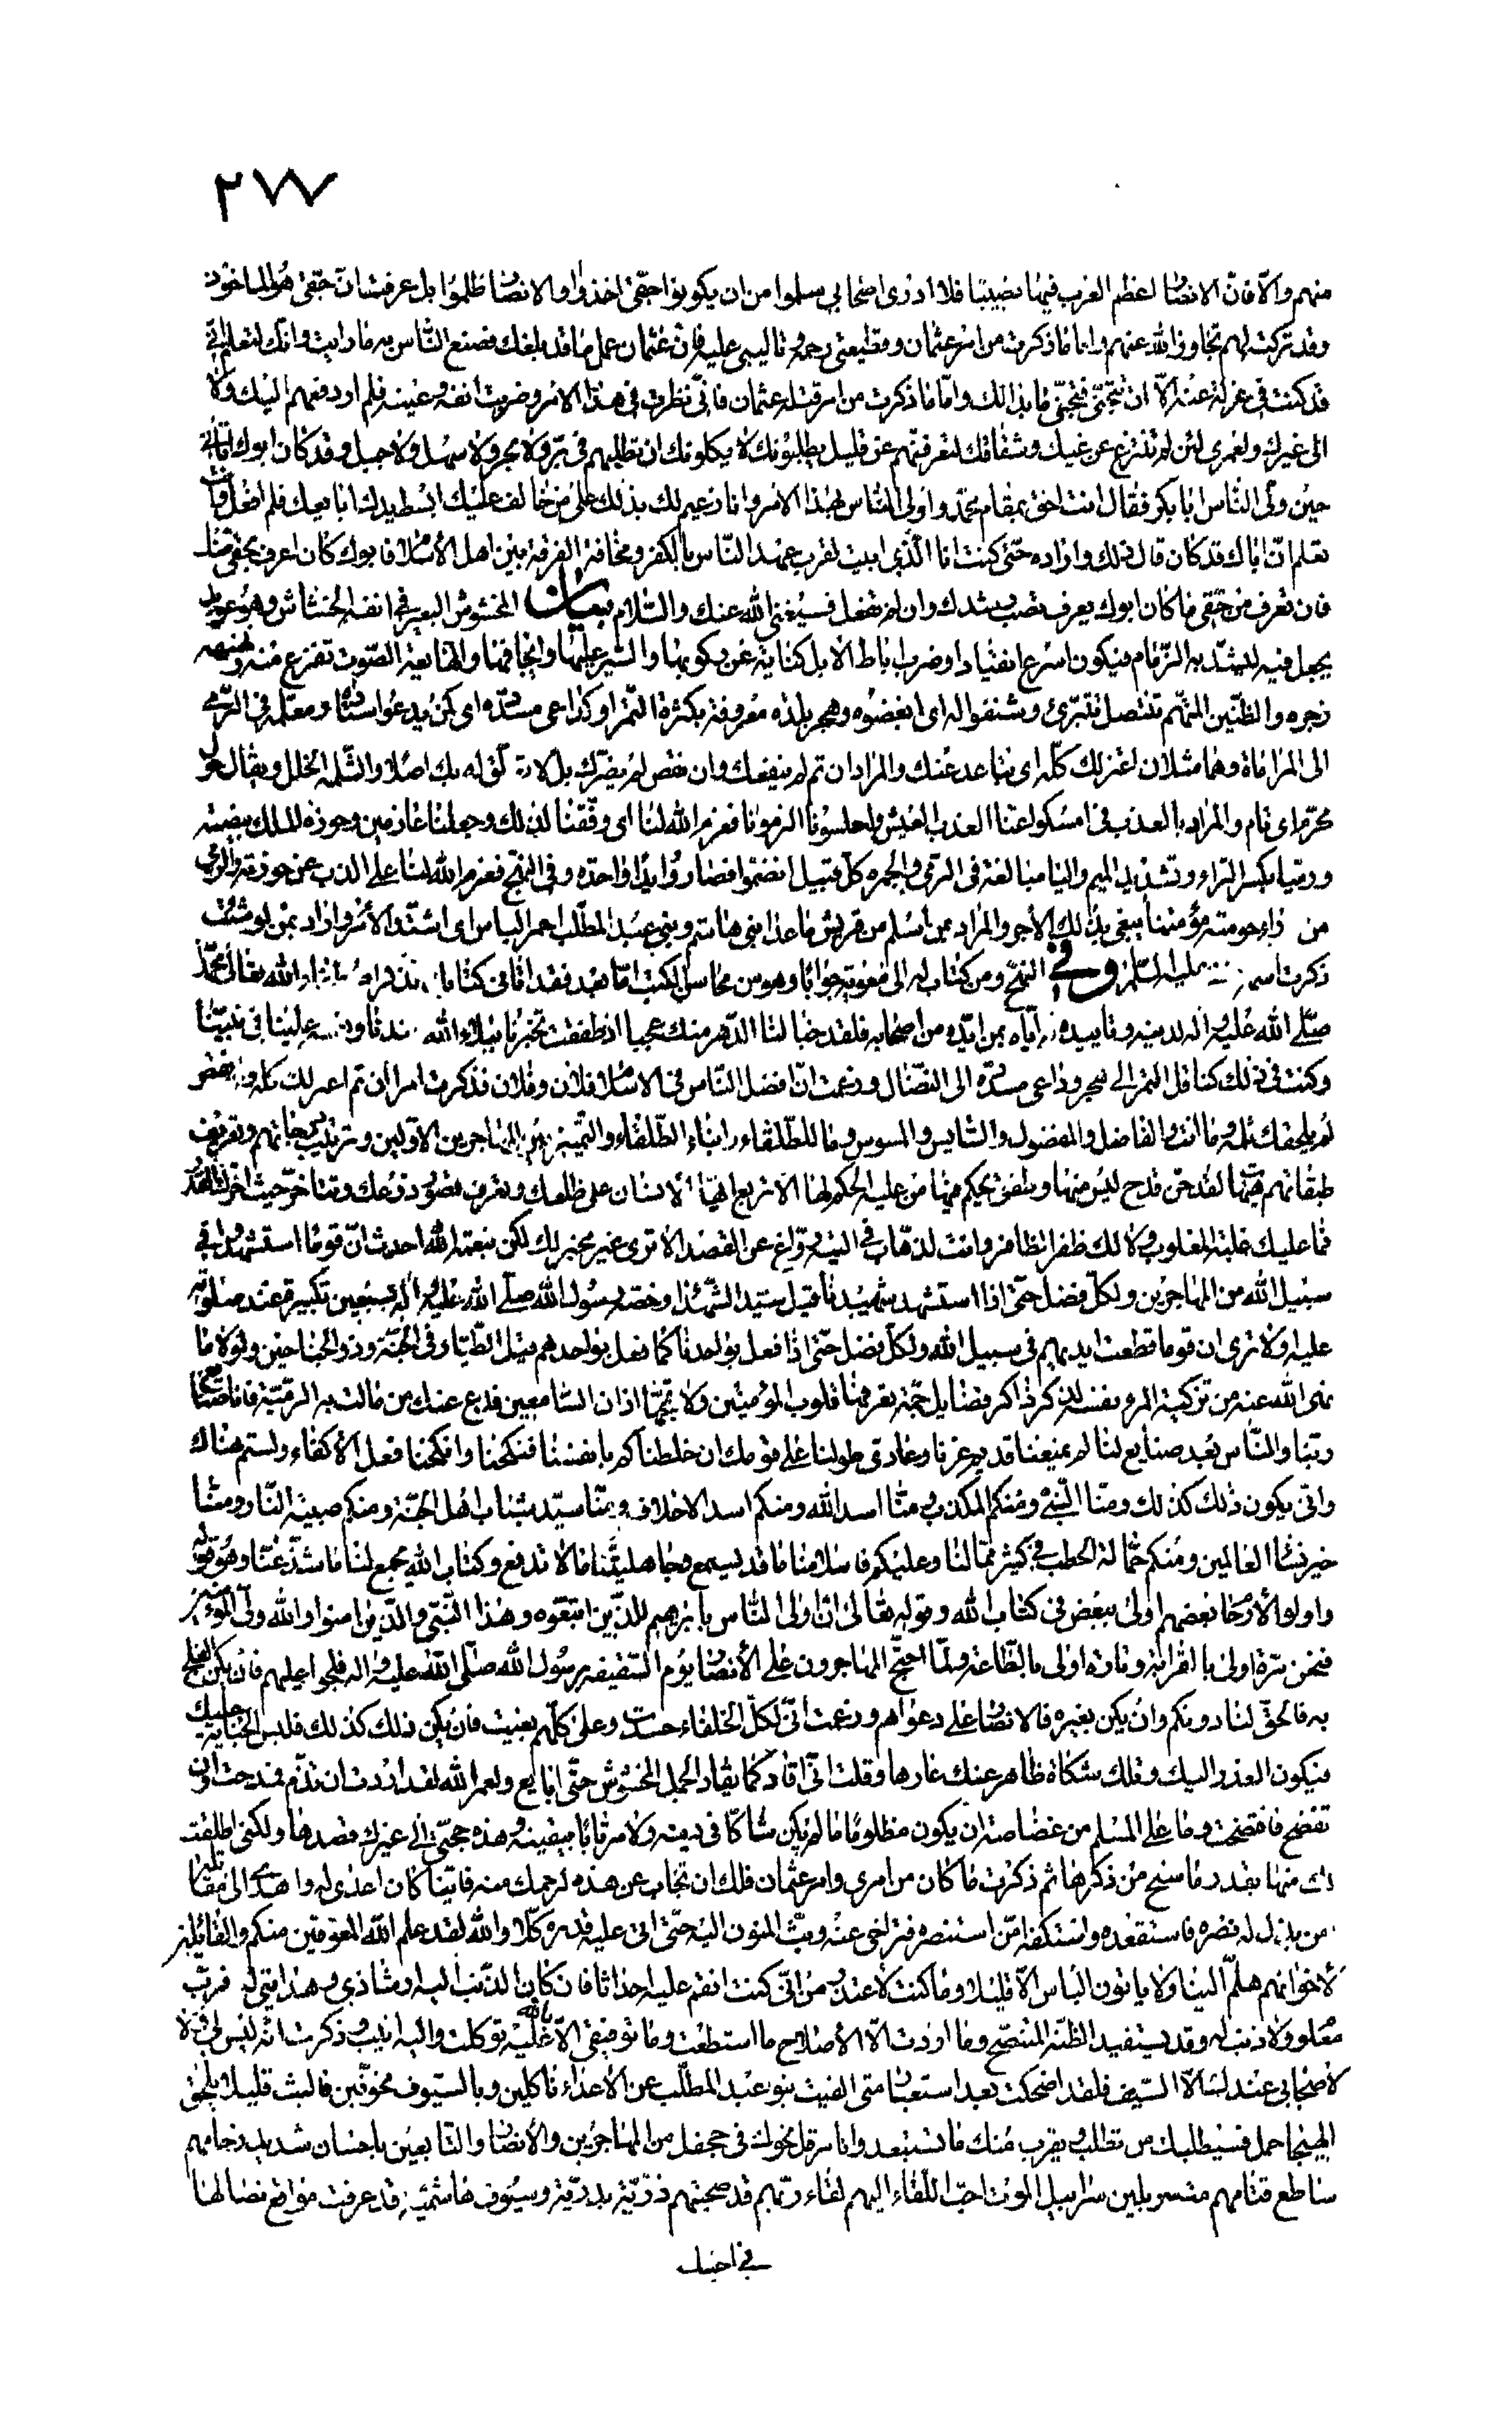 ٢٧٧
منهم والّا فانّ الانصار اعظم العرب فيها نصيبا فلا ادرى اصحابي سلموا من ان يكونوا حقّى اخذوا او الانصار ظلموا بل عرفت ان حقّى هو الماخوذ
وقد تركته لهم تجاوز الله عنهم واما ما ذكرت من امر عثمان وقطيعتى رحمه وتاليبى عليه فان عثمان عمل ما قد بلغك فصنع الناس به ما رايت وانك لتعلم انّى
قد كنت فى عزلة عنه الّا ان تتجنّى فتجنّ ما بدا لك وامّا ما ذكرت من امر قتلة عثمان فانّى نظرت فى هذا الامر وضربت انفه وعينه فلم ار دفعهم اليك ولا
الى غيرك ولعمرى لئن لم تنزع عن غيك وشقاقك لتعرفنّهم عن قليل يطلبونك لا يكلفونك ان تطلبهم فى برّ ولا بحر ولا سهل ولا جبل وقد كان ابوك اتانى
حين ولّى الناس ابا بكر فقال انت احق بمقام محمّد واولى الناس بهذا الامر وانا زعيم لك بذلك على من خالف عليك ابسط يدك ابايعك فلم افعل وانت
تعلم انّ اباك قد كان قال ذلك واراده حتّى كنت انا الّذى ابيت لقرب عهد النّاس بالكفر ومخافة الفرقة بين اهل الأسلام فابوك كان اعرف بحقى منك
فان تعرف من حقى ما كان ابوك يعرف تصب رشدك وان لم تفعل فسيغنى الله عنك والسّلام بيان المخشوش البعير فى انفه الخشاش وهو عويد
يجعل فيه ليشدّ به الزّمام فيكون اسرع انقيادا وضرب اباط الأبل كناية عن ركوبها والسّير عليها وايجافها والهايعة الصّوت تفزع منه ونهنهه
زجره والظّنين المتّهم تنتصل تتبرّئ وشنفوا له اى ابغضوه وهجر بلدة معروفة بكثرة التّمر او كداعى مسدّده اى كمن يدعو استاده ومعلّمه فى الرّمى
الى المراماة وهما مثلان اعتزلك كلّه اى يتباعد عنك والمراد ان تم لم ينفعك وان نقص لم يضرّك بل لا تعلّق له بك اصلا والثّلمة الخلل ويقال حول
مجرّم اى تام والمراد بالعذب فى امسكوا عنّا العذب العيش واحلسونا الزمونا فعزم الله لنا اى وفّقنا لذلك وجعلنا عازمين وحوزة الملك بيضته
ورمّيا بكسر الرّاء وتشديد الميم والياء مبالغة فى الرّمى والجمرة كلّ قبيل انضمّوا فصاروا يدا واحدة وفى النهج فعزم الله لنا على الذب عن حوزته والرّمى
من وراء حومته مؤمننا يبغى بذلك الأجر والمراد بمن اسلم من قريش ما عدا بنى هاشم وبنى عبد المطّلب احمر الباس اى اشتدّ الأمر واراد بمن لو شئت
ذكرت اسمه نفسه عليه السّلم وفى النهج ومن كتاب له الى معوية جوابا وهو من محاسن الكتب امّا بعد فقد اتانى كتابك تذكر اصطفاء الله تعالى محمّدا
صلّى الله عليه واله لدينه وتاييده ايّاه بمن ايّده من اصحابه فلقد خبا لنا الدّهر منك عجبا اذ طفقت تخبرنا ببلاء الله عندنا ونعمته علينا فى نبيّنا
وكنت فى ذلك كناقل التمر الى هجر وداعى مسدّده الى النضال وزعمت انّ افضل النّاس فى الاسلام فلان وفلان فذكرت امرا ان تم اعتزلك كلّه وان نقص
لم يلحقك ثلمه وما انت والفاضل والمفضول والسّايس والمسوس وما للطّلقاء وابناء الطّلقاء والتّمييز بين المهاجرين الأوّلين وترتيب درجاتهم وتعريف
طبقاتهم هيهات لقد حنّ قدح ليس منها وطفق يحكم فيها من عليه الحكم لها الا تربع ايّها الأنسان على ظلعك وتعرف قصور ذرعك وتتاخّر حيث اخّرك القدر
فما عليك غلبة المغلوب ولا لك ظفر الظافر وانت لذهّاب فى التيه روّاغ عن القصد الا ترى غير مخبر لك لكن بنعمة الله احدث انّ قوما استشهدوا فى
سبيل الله من المهاجرين ولكلّ فضل حتّى اذا استشهد شهيدنا قيل سيّد الشّهداء وخصّه رسول الله صلّى الله عليه واله بسبعين تكبيرة عند صلوته
عليه اولا ترى ان قوما قطعت ايديهم فى سبيل الله ولكلّ فضل حتّى اذا فعل بواحدنا كما فعل بواحدهم قيل الطّيّار فى الجنّة وذو الجناحين ولولا ما
نهى الله عنه من تزكية المرء نفسه لذكر ذاكر فضايل جمّة تعرفها قلوب المؤمنين ولا تمجّها اذان السّامعين فدع عنك من مالت به الرميّة فانا صنايع
ربّنا والنّاس بعد صنايع لنا لم يمنعنا قديم عزّنا وعادى طولنا على قومك ان خلطناكم بانفسنا فنكحنا وانكحنا فعل الأكفاء ولستم هناك
وانّى يكون ذلك كذلك ومنّا النّبىّ ومنكم المكذب ومنّا اسد الله ومنكم اسد الاحلاف ومنّا سيّدا شباب اهل الجنّة ومنكم صبية النّار ومنّا
خير نساء العالمين ومنكم حمّالة الحطب فى كثير ممّا لنا وعليكم فاسلامنا ما قد سمع وجاهليّتنا ما لا تدفع وكتاب الله يجمع لنا ما شذّ عنّا وهو قوله
واولوا الأرحام بعضهم اولى ببعض فى كتاب الله وقوله تعالى انّ اولى النّاس بابرهيم للّذين اتبعوه وهذا النّبىّ والّذين امنوا والله ولىّ المؤمنين
فنحن مرّة اولى بالقرابة وتارة اولى بالطّاعة ولمّا احتجّ المهاجرون على الأنصار يوم السّقيفة برسول الله صلّى الله عليه واله فلجوا عليهم فان يكن الفلج
به فالحقّ لنا دونكم وان يكن بغيره فالانصار على دعواهم وزعمت انّى لكلّ الخلفاء حسدت وعلى كلّهم بغيت فان يكن ذلك كذلك فليس الجناية عليك
فيكون العذر اليك وتلك شكاة ظاهر عنك عارها وقلت انّى اقاد كما يقاد الجمل المخشوش حتّى ابايع ولعمر الله لقد اردت ان تذّم فمدحت وان
تفضح فافتضحت وما على المسلم من غضاضة ان يكون مظلوما ما لم يكن شاكّا فى دينه ولا مرتابا بيقينه وهذه حجّتى الى غيرك قصدها ولكنى اطلقت
لك منها بقدر ما سنح من ذكرها ثم ذكرت ما كان من امرى وامر عثمان فلك ان تجاب عن هذه لرحمك منه فايّنا كان اعدى له واهدى الى مقاتله
من بذل له نصره فاستقعده واستكفه امّن استنصره فتراخى عنه وبثّ المنون اليه حتّى اتى عليه قدره كلّا والله لقد علم الله المعوقين منكم والقائلين
لأخوانهم هلمّ الينا ولا ياتون الباس الّا قليلا وما كنت لأعتذر من انّى كنت انقم عليه احداثا فان كان الذّنب اليه ارشادى وهدايتى له فربّ
ملوم ولا ذنب له وقد يستفيد الظّنة المتنصّح وما اردت الّا الأصلاح ما استطعت وما توفيقى الّا بالله عليه توكلت واليه انيب وذكرت انّه ليس لى ولا
لأصحابى عندك الّا السّيف فلقد اضحكت بعد استعبار متى الفيت بنو عبد المطّلب عن الأعداء ناكلين وبالسّيوف مخوّفين فالبث قليلا يلحق
الهيجا حمل فسيطلبك من تطلب ويقرب منك ما تستبعد وانا مرقل نحوك فى جحفل من المهاجرين والأنصار والتّابعين باحسان شديد زحامهم
ساطع قتامهم متسربلين سرابيل الموت احبّ اللّقاء اليهم لقاء ربّهم قد صحبتهم ذرّيّة بدريّة وسيوف هاشميّة قد عرفت مواقع نصالها
فى اخيك